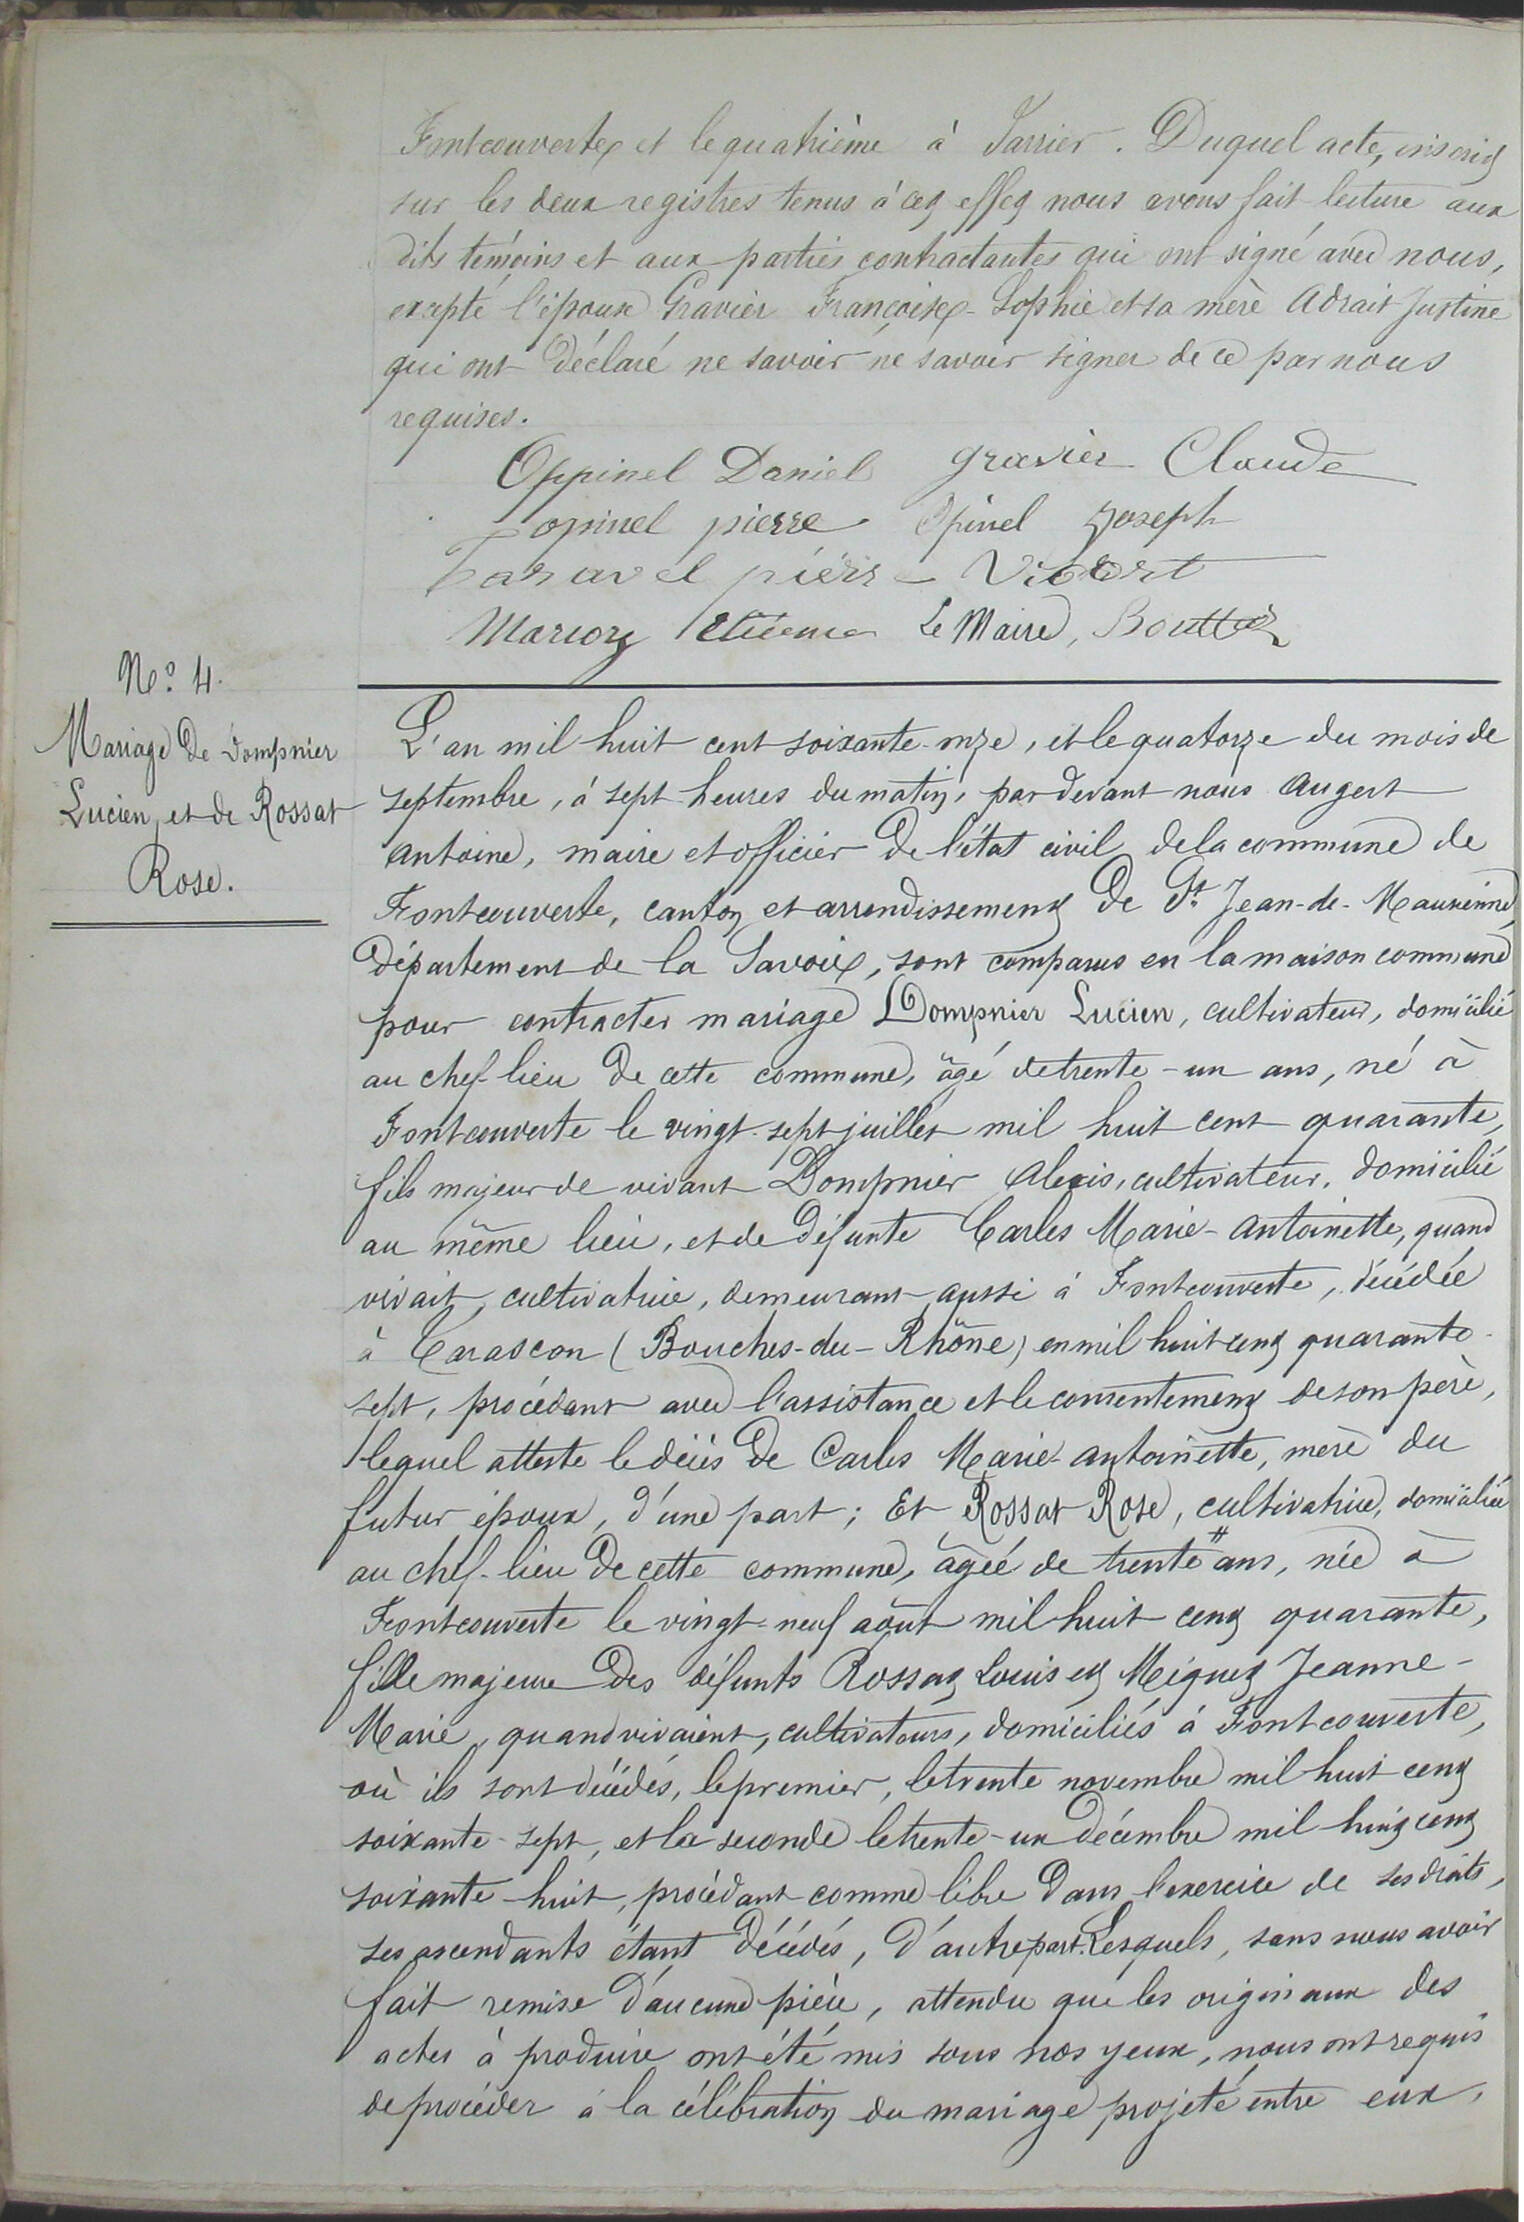 Fontcouverte et le quatrième à Jarrier. Duquel acte, inscrit
sur les deux registres tenus à cet effet nous avons fait lecture aux
dits témoins et aux parties contractantes qui ont signé avec nous,
excepté l'épouse Gravier Françoise-Sophie et sa mère Adrait Justine
qui ont déclaré ne savoir ne savoir signer de ce par nous
requises.
Oppinel Daniel gravier Claude
opinel pierre Opinel Joseph
taravel pierre
Marion Etienne Le Maire, Bouttaz
No. 4.
Mariage de Dompnier
Lucien et de Rossat
Rose.
L'an mil huit cent soixante-onze, et le quatorze du mois de
septembre, à sept heures du matin, par devant nous Augert
Antoine, maire et officier de l'état civil de la commune de
Fontcouverte, canton et arrondissement de St. Jean-de-Maurienne,
département de la Savoie, sont comparus en la maison commune
pour contracter mariage Dompnier Lucien, cultivateur, domicilié
au chef-lieu de cette commune, âgé de trente-un ans, né à
Fontcouverte le vingt-sept juillet mil huit cent quarante,
fils majeur de vivant Dompnier Alexis, cultivateur, domicilié
au même lieu, et de défunte Carles Marie-Antoinette, quand
vivait, cultivatrice, demeurant aussi à Fontcouverte, décédée
à Tarascon (Bouches-du-Rhône) en mil huit cent quarante-
sept, procédant avec l'assistance et le consentement de son père,
lequel atteste le décès de Carles Marie-Antoinette, mère du
futur époux, d'une part; Et Rossat Rose, cultivatrice, domiciliée
au chef-lieu de cette commune, âgée de trente # ans, née à
Fontcouverte le vingt-neuf août mil huit cent quarante,
fille majeure des défunts Rossat Louis et Miguet Jeanne-
Marie, quand vivaient, cultivateurs, domiciliés à Fontcouverte,
où ils sont décédés, le premier, le trente novembre mil huit cent
soixante-sept, et la seconde le trente-un décembre mil huit cent
soixante-huit, procédant comme libre dans l'exercice de ses droits,
ses ascendants étant décédés, d'autre part. Lesquels, sans nous avoir
fait remise d'aucune pièce, attendu que les originaux des
actes à produire ont été mis sous nos yeux, nous ont requis
de procéder à la célébration du mariage projeté entre eux,